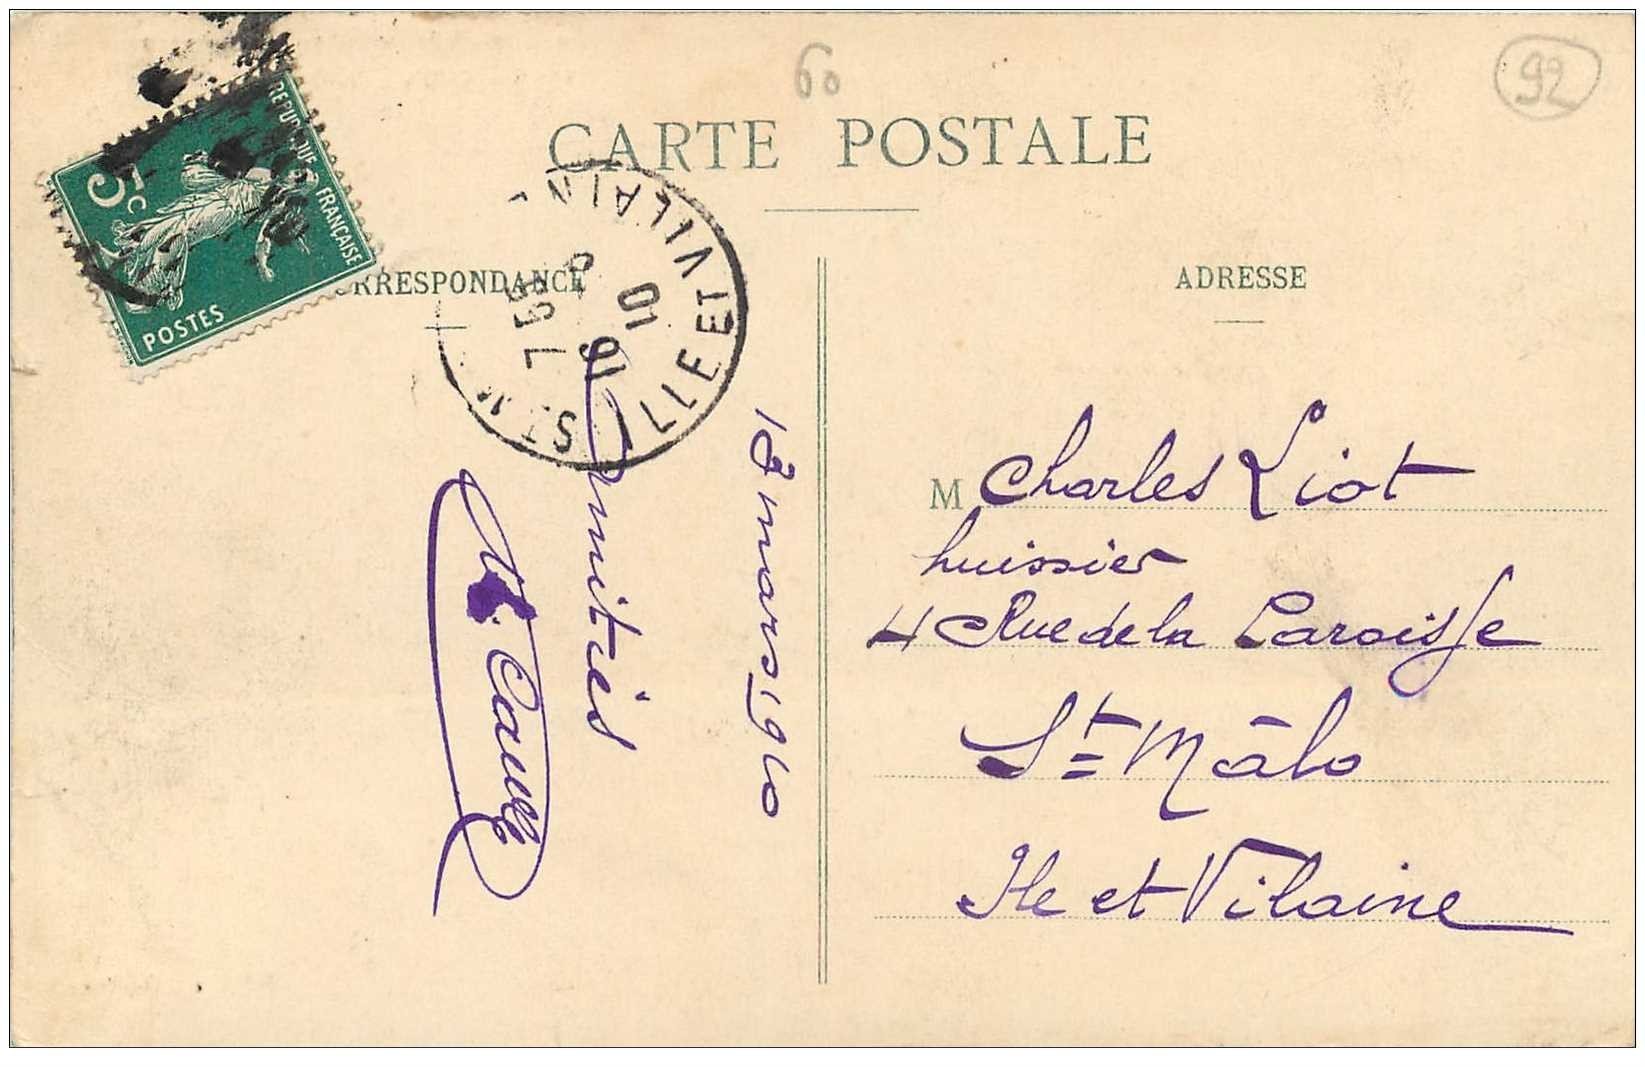 60
92
CARTE POSTALE
RÉPUBLIQUE FRANÇAISE
5c
POSTES
CORRESPONDANCE
ADRESSE
ILLE ET VILAINE
13 mars 1910
Amitiés
M Charles Liot
huissier
4 Rue de la Paroisse
St Mâlo
Ile et Vilaine